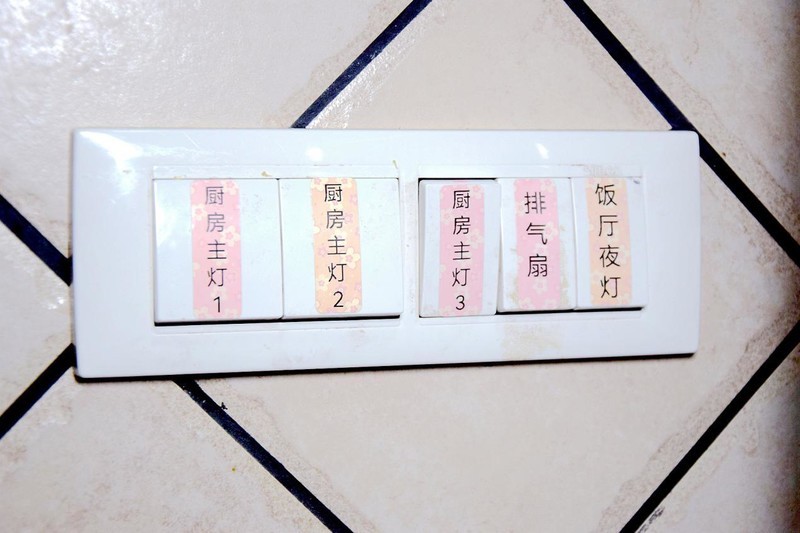 厨房主灯1
厨房主灯2
厨房主灯3
排气扇
饭厅夜灯